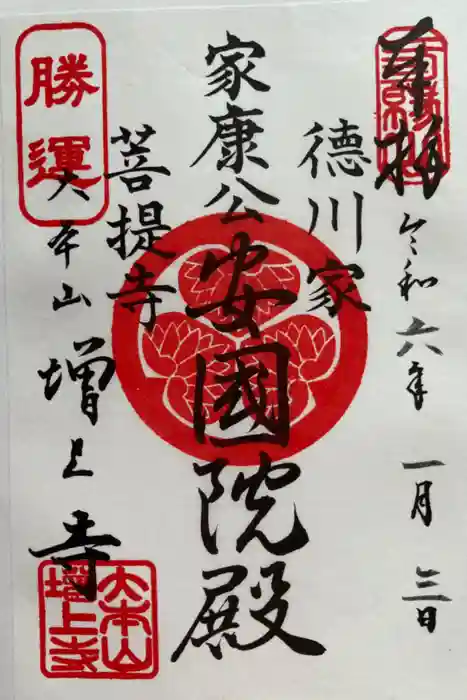 奉拝
令和六年一月三日
徳川家
家康公安國院殿
菩提寺
勝運
大本山増上寺
大本山
増上寺